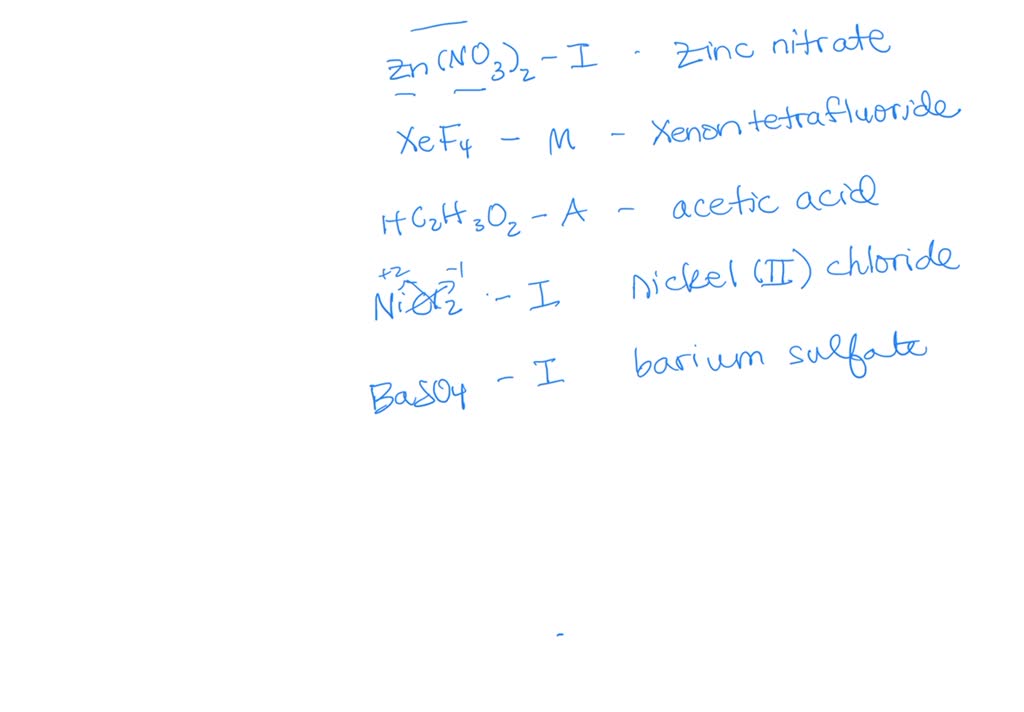 Zn(NO3)2 - I · Zinc nitrate
XeF4 - M - Xenon tetrafluoride
HC2H3O2 - A - acetic acid
+2 -1
NiCl2 - I Nickel (II) chloride
BaSO4 - I barium sulfate